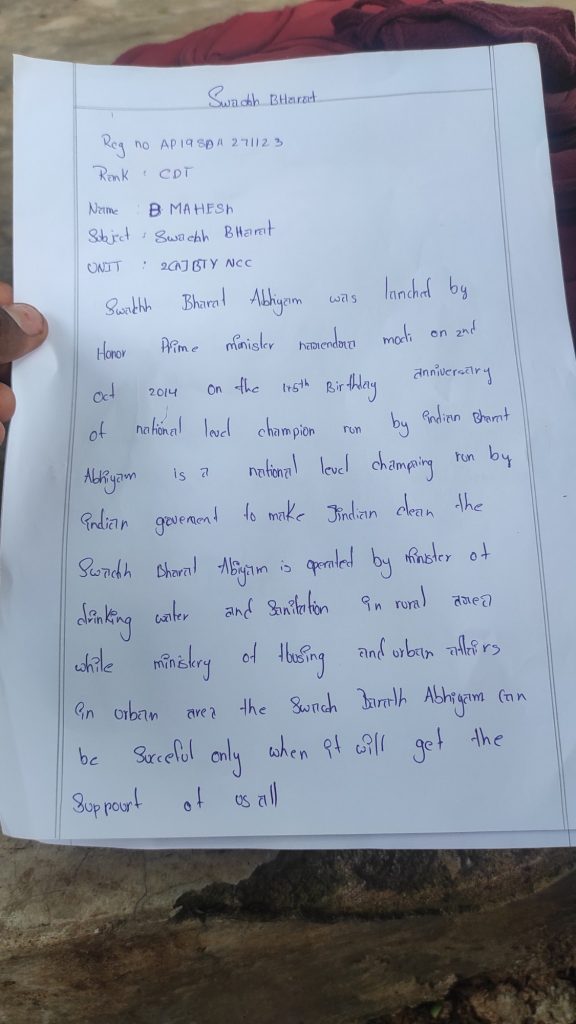 Swachh BHarat
Reg no AP19SDA 271123
Rank : CDT
Name : B MAHESH
Subject : Swachh BHarat
UNIT : 2(A) BTY NCC
Swakhh Bharat Abhiyam was lanched by
Honor Prime minister narendara modi on 2nd
Oct 2014 on the 145th Birthday anniversary
of national level champion run by indian Bharat
Abhiyam is a national level champaing run by
indian goverment to make Iindian clean the
Swachh Bharat Abiyam is operated by minister of
drinking water and Sanitation in rural area
while ministery of Housing and urban affairs
in urban area the Swach Barath Abhiyam can
be Surceful only when it will get the
Suppourt of us all